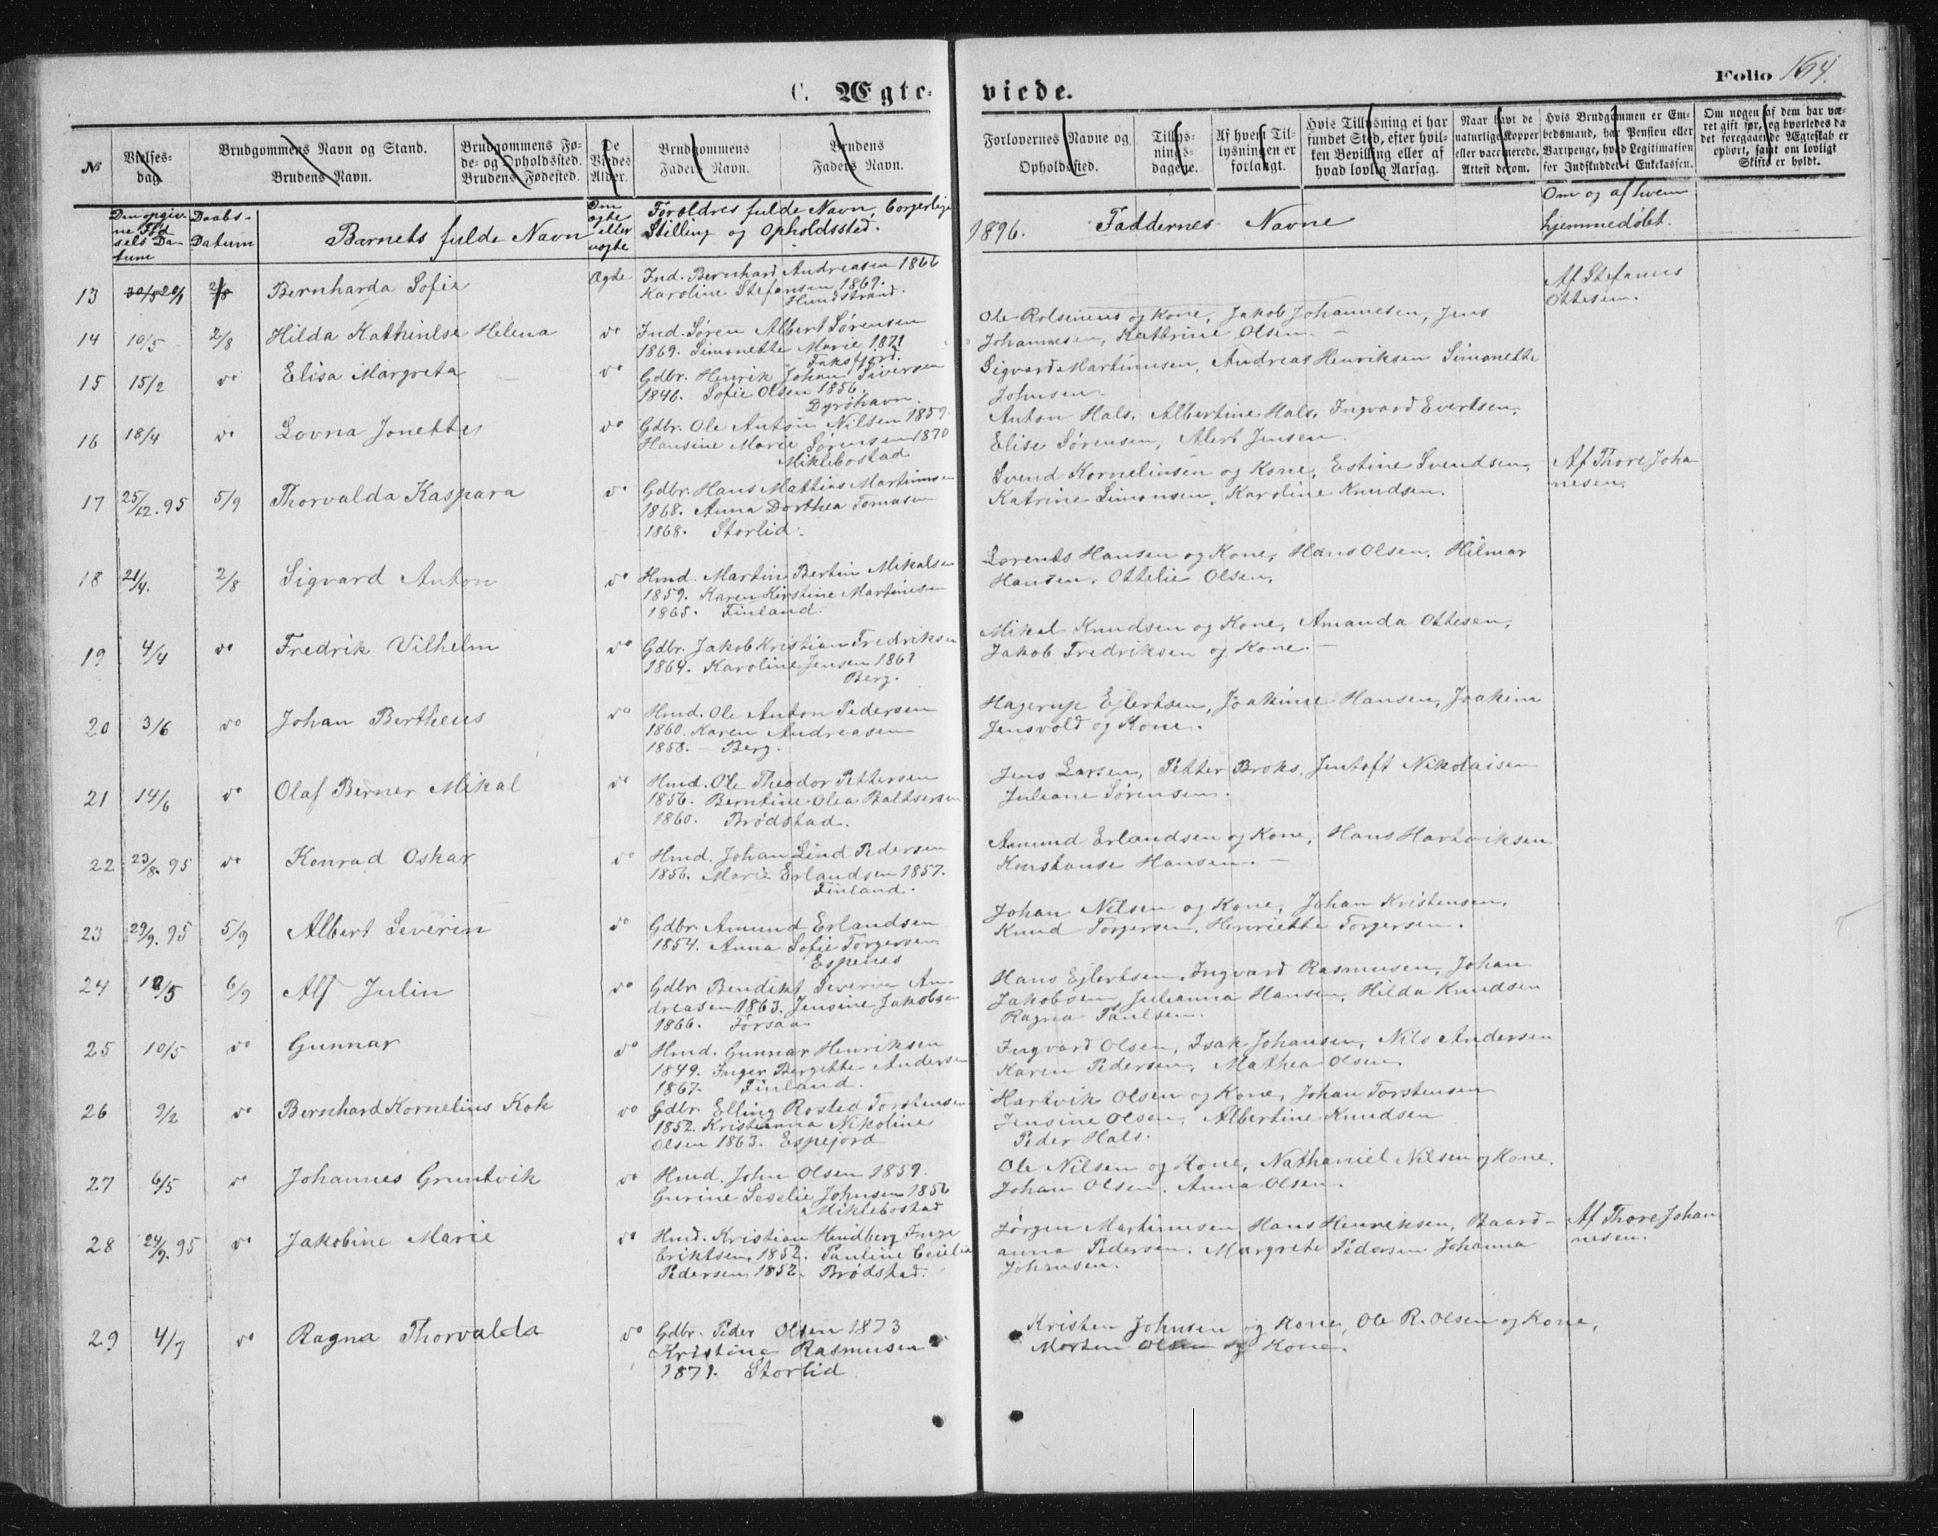 C. Ægte-
viede.
Folio 164.
№
Vielses-
dag
Brudgommens Navn og Stand.
Brudens Navn.
Brudgommens Fø-
de- og Opholdssted.
Brudens Fødested.
De
Viedes
Alder.
Brudgommens
Faders Navn.
Brudens
Faders Navn.
Forlovernes Navne og
Opholdssted.
Tillys-
nings-
dagene.
Af hvem Til-
lysningen er
forlangt.
Hvis Tillysning ei har
fundet Sted, efter hvil-
ken Bevilling eller af
hvad lovlig Aarsag.
Naar havt de
naturlige Kopper
eller vaccinerede.
Attest derom.
Hvis Brudgommen er Em-
bedsmand, har Pension eller
Vartpenge, hvad Legitimation
for Indskuddet i Enkekassen.
Om nogen af dem har væ-
ret gift før, og hvorledes da
det foregaaende Ægteskab er
ophørt, samt om lovligt
Skifte er holdt.
Den opgiv
ne Fød
sels Da-
tum
Daabs-
Datum
Barnets fulde Navn
Om
ægte
eller
uægte
Foræeldres fulde Navn, borgerlige
Stilling og Opholdssted.
1896.
Faddernes Navne
Om og af hvem
hjemmedøbt.
13 20/1 2/8 Bernharda Sofie Ægte Ind. Bernhard Andreasen 1866
Karoline Stefansen 1869.
Hundstrand.
Af Stefanus
Ottesen.
14 10/5 2/8 Hilda Kathinlse Helena v° Ind. Søren Albert Sørensen
1869. Simonette Marie 1871
Faksfjord.
Ole Rolsenius og Kone, Jakob Johannesen, Jens
Johannesen, Kathrine Olsen.
15 15/2 v° Elisa Margreta v° Gdbr. Henrik Johan Siversen
1846. Sofie Olsen 1856.
Dyrøhavn.
Sigvard Martinusen, Andreas Henriksen Simonette
Johnsen.
16 18/4 v° Lovna Jonette v° Gdbr. Ole Anton Nilsen 1859.
Hansine Marie Sørensen 1870
Miklebostad
Anton Hals, Albertine Hals, Ingvard Evertsen,
Elise Sørensen, Alert Jensen.
17 25/12. 95 5/9 Thorvalda Kaspara v° Gdbr. Hans Mathias Martinusen
1868. Anna Dorthea Tomasen
1868. Storlid.
Svend Kornelinsen og Kone, Estine Svendsen,
Katrine Simonsen, Karoline Knudsen.
Af Thore Joha
nesen.
18 21/4. 2/8 Sigvard Anton v° Hmd. Martin Bertin Mikalsen
1859. Karen Kirstine Martinsen
1865. Finland.
Lorents Hansen og Kone, Hans Olsen, Hilmar
Hansen, Ottelie Olsen.
19 4/4 v° Fredrik Vilhelm v° Gdbr. Jakob Kristian Fredriksen
1864. Karoline Jensen 1861
Berg.
Mikal Knudsen og Kone, Amanda Ottesen,
Jakob Fredriksen og Kone.
20 3/6 v° Johan Bertheus v° Hmd. Ole Anton Pedersen
1860. Karen Andreasen
1858. Berg.
Hagerup Ejlertsen, Joakime Hansen, Joakim
Jensvold og Kone.
21 14/6 v° Olaf Berner Mikal v° Hmd. Ole Theodor Pettersen
1856. Berntine Olea Baltsersen
1860. Brødstad.
Jens Larsen, Petter Broks, Jentoft Nikolaisen
Juliane Sørensen.
22 23/8. 95 v° Konrad Oskar v° Hmd. Johan Lind Pedersen
1856. Marie Erlandsen 1857.
Finland.
Amund Erlandsen og Kone, Hans Hartviksen
Konstanse Hansen.
23 29/9. 95 5/9 Albert Severin v° Gdbr. Amund Erlandsen
1854. Anna Sofie Torgersen
Espenes
Johan Nilsen og Kone, Johan Kristensen,
Knud Torgersen, Henriette Torgersen.
24 6/9 Alf Julin v° Gdbr. Bendikt Severin An-
dreasen 1863. Jensine Jakobsen
1866. Forsaa
Hans Ejlertsen, Ingvard Rasmusen, Johan
Jakobsen, Julianna Hansen, Hilda Knudsen
Ragna Paulsen.
25 10/5 v° Gunnar v° Hmd. Gunnar Henriksen
1849. Inger Bergette Andersen
1867. Finland.
Ingvard Olsen, Isak Johansen, Nils Andersen
Karen Pedersen, Mathea Olsen.
26 9/2 v° Bernhard Kornelius Kok v° Gdbr. Elling Rosted Torstensen
1852. Kristianna Nikoline
Olsen 1863. Espejord
Hartvik Olsen og Kone, Johan Torstensen
Jensine Olsen, Albertine Knudsen
Peder Hals.
27 6/5 v° Johannes Gruntvik v° Hmd. John Olsen 1859.
Gurine Seselie Johnsen 1856
Miklebostad
Ole Nilsen og Kone, Nathaniel Nilsen og Kone.
Johan Olsen. Anna Olsen.
28 24/9. 95 v° Jakobine Marie v° Hmd. Kristian Hindberg Inge
briktsen, 1852. Pauline Cecilie
Pedersen 1852. Brødstad.
Jørgen Martinusen, Hans Henriksen, Baard-
anna Pedersen. Margrete Pedersen Johanna
Johansen.
Af Thore Johan
nesen.
29 4/7 v° Ragna Thorvalda v° Gdbr. Peder Olsen 1873
Kristine Rasmusen
1871. Storlid
Kristen Johnsen og Kone, Ole R. Olsen og Kone,
Morten Olsen og Kone.